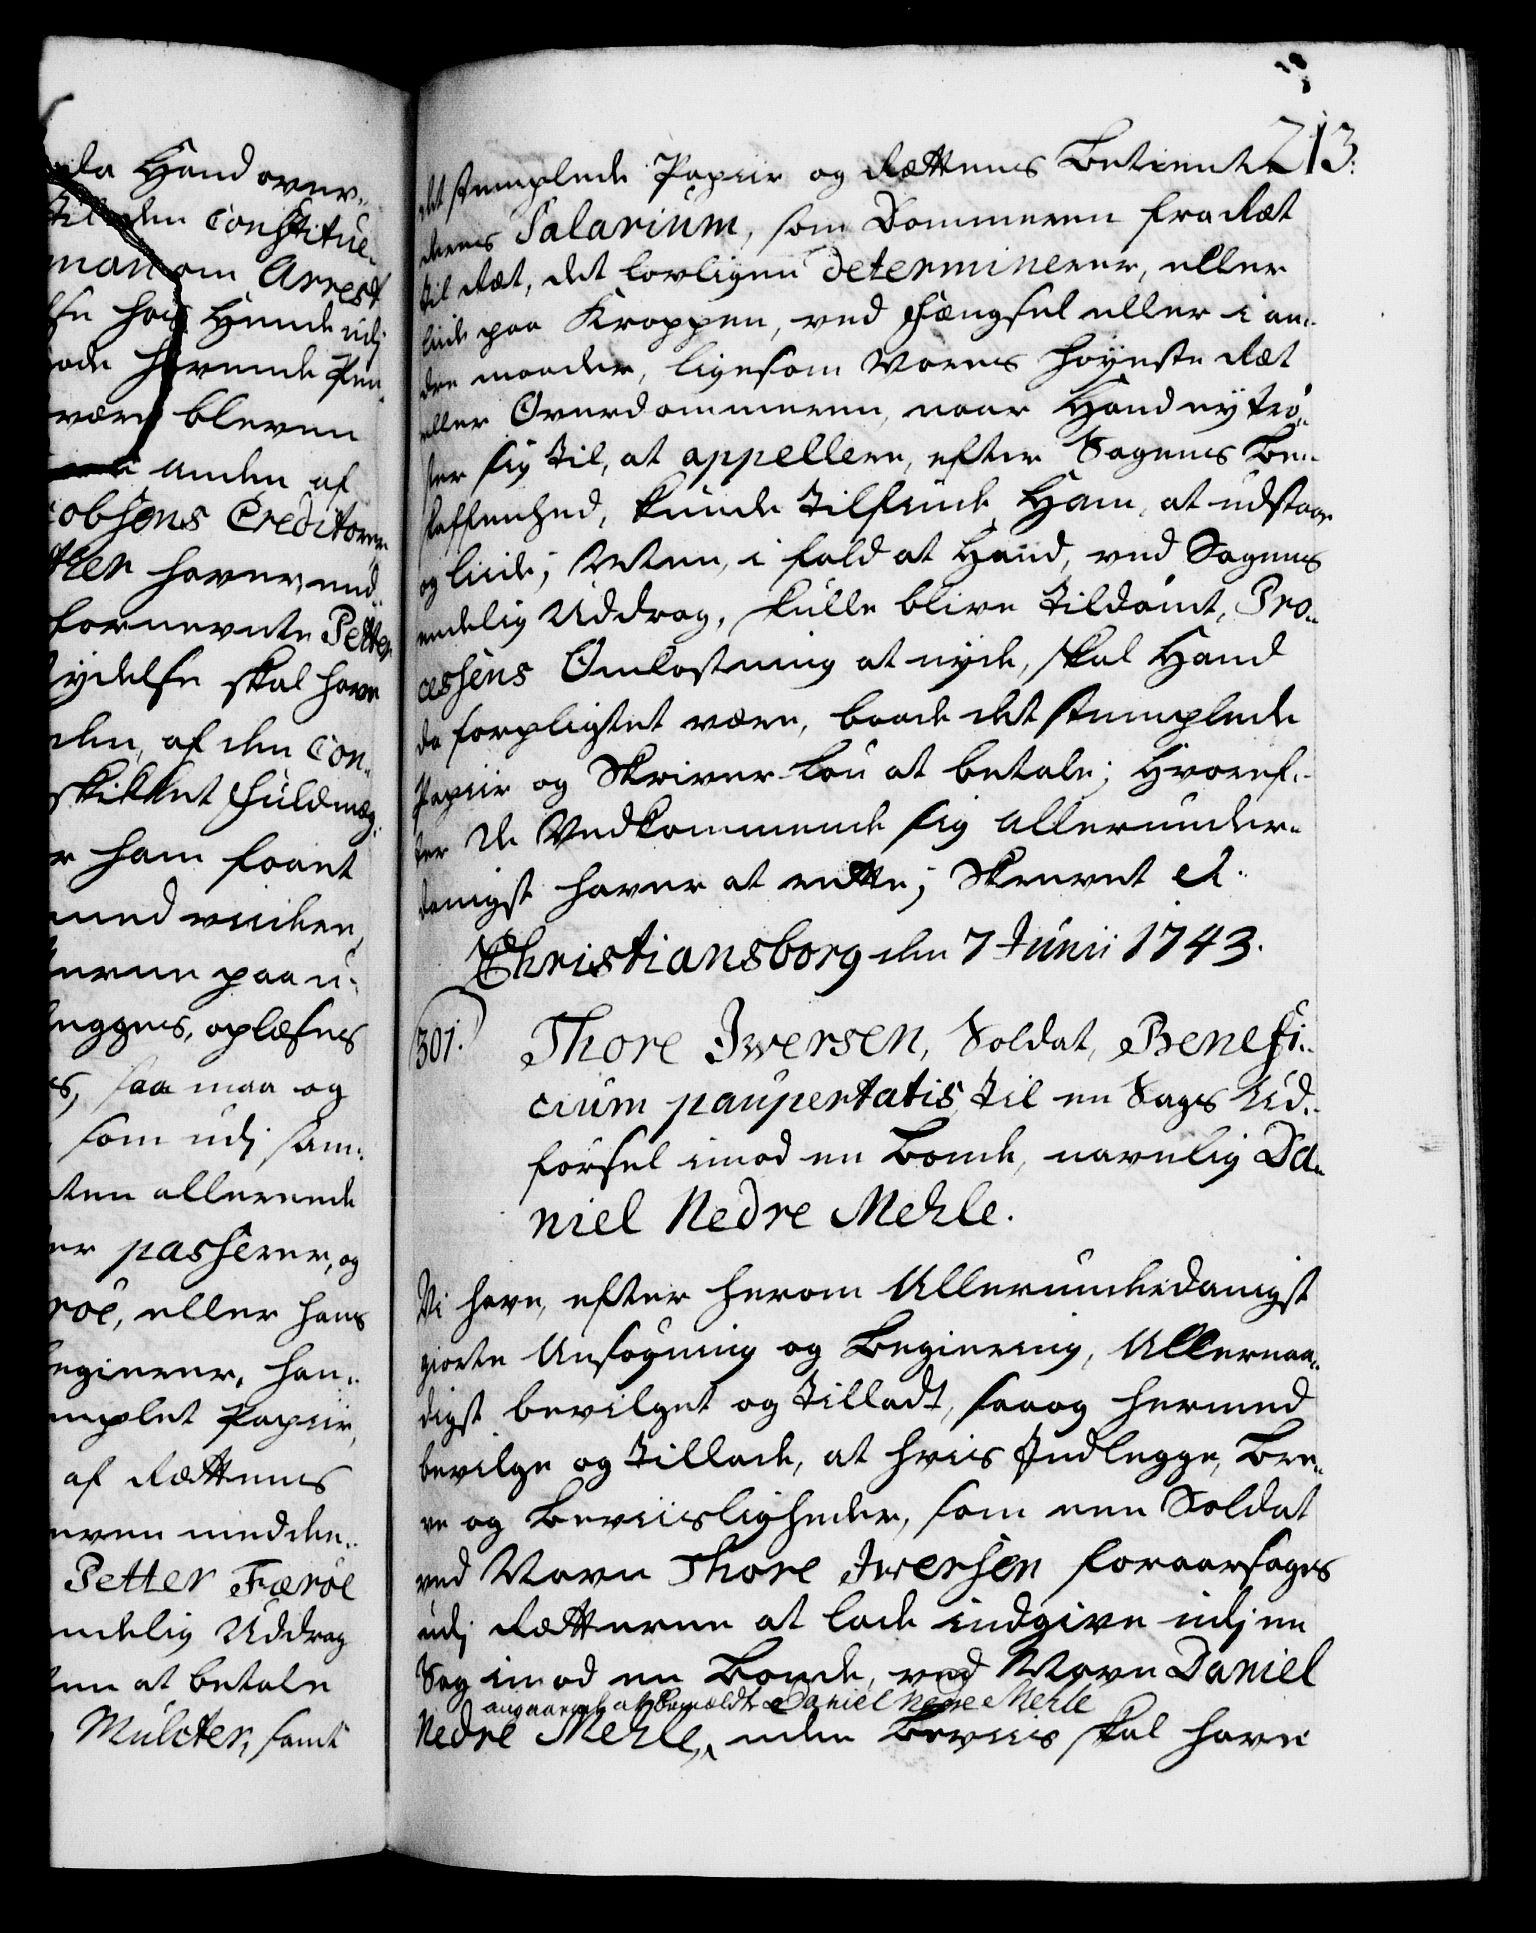 da Hand over-
til den Constitue-
man om Arrest
hos Hende udj
hode havende Pen-
være bleven
anden af
cobsens Creditorer
haver, end
fornevnte Petter
ydelse skal have
den, af den Con-
skikket Fuldmæg-
r ham foant
med
erne paa u-
legges, oplæses
s, saa maa og
som udj sam-
ten allerede
er passerer, og
röe, eller hans
begierer, han-
emplet Papiir,
af Rettens
even med de-
Petter Færöe
endelig Uddrag
en at betale
Mulcter, samt
213.
det stemplede Papiir og Rettens Betiente
deres Salarium, som Dommeren fra Ret
til Ret, det lovligen determinerer, eller
liide paa Kroppen, ved Fængsel eller i an-
dre maader, ligesom Vores Høyeste Ret
eller Overdommeren, naar Hand nyttrö-
ster sig til, at appellere, efter Sagens Be-
skaffenhed, kunde tilfinde Ham, at udstaae
og liide; Men, i fald at Hand, ved Sagens
endelig Uddrag, skulle blive tildömt, Pro-
cessens Omkostning at nyde, skal Hand
da forpligtet være, baade det stemplede
Papiir og Skriver-Lön at betale; Hvoref-
ter De Vedkommende sig allerunder-
danigst haver at rette; Skrevet &.
Christiansborg den 7 Junii 1743.
301. Thore Iversen, Soldat, Benefi-
cium paupertatis, til en Sags Ud-
försel imod en Bonde, navnlig Da-
niel Nedre Mehle.
Vi have, efter herom Allerunderdanigst
giorte Ansögning og Begiering, Allernaa-
digst bevilget og tilladt, saa og hermed
bevilge og tillade, at hviis Indlegge, Bre-
ve og Beviisligheder, som een Soldat
ved Navn Thore Iversen foraarsages
udj Retterne at lade indgive udj en
Sag imod en Bonde, ved Navn Daniel
angaaende at bemeldte Daniel Nedre Mehle
Nedre Mehle, uden Beviis skal have